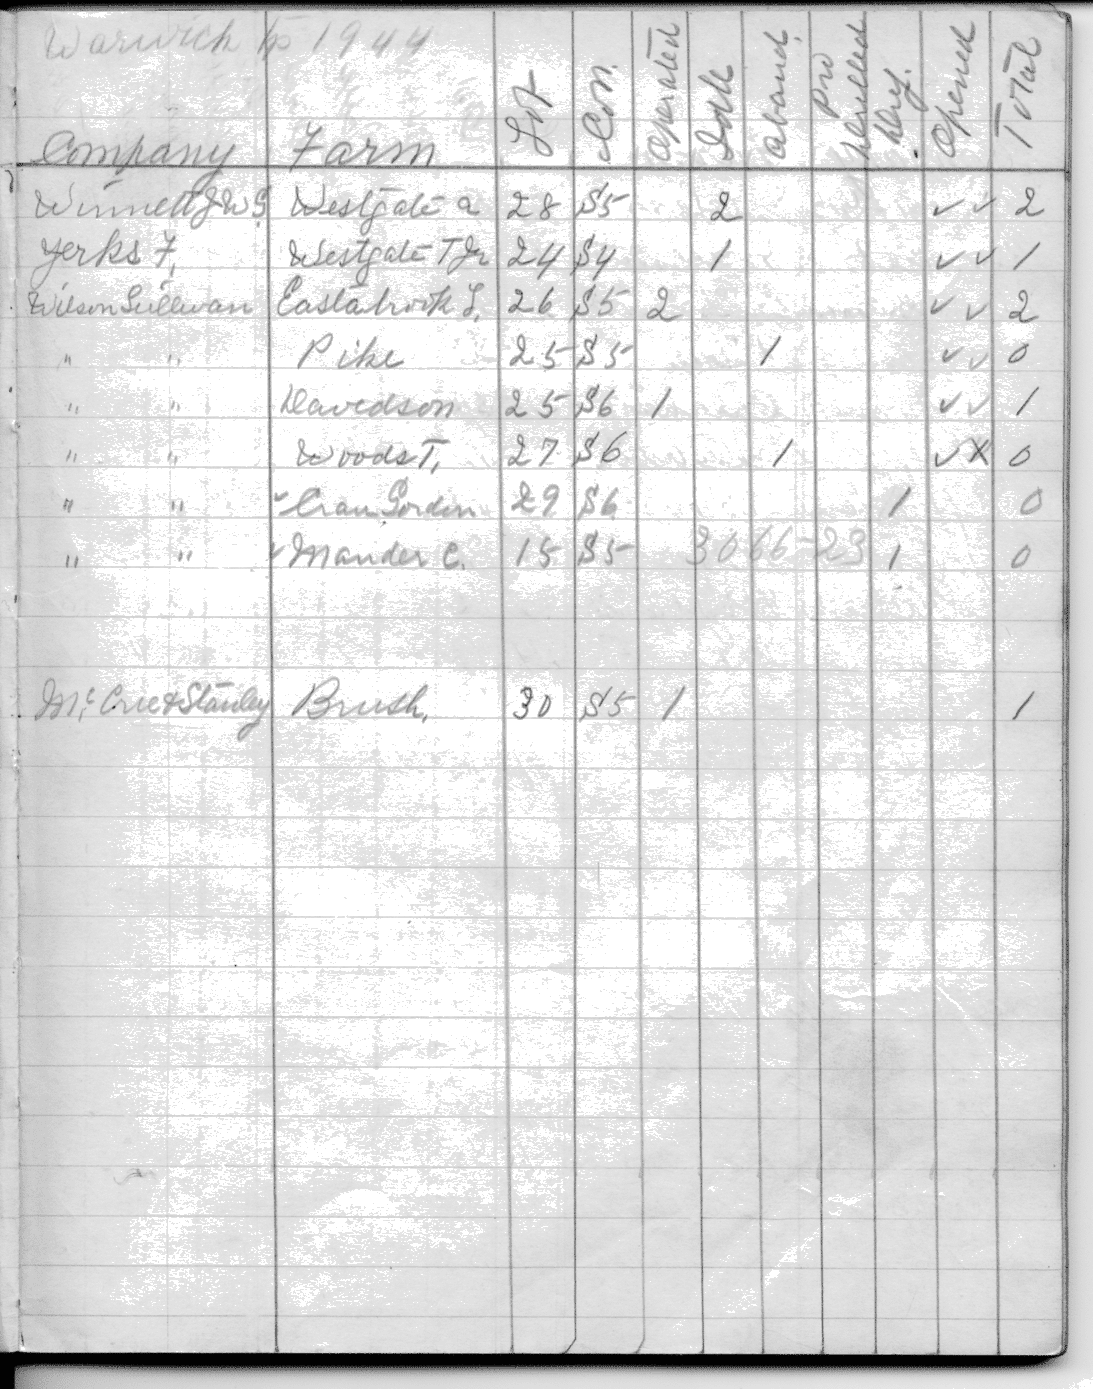 Warwick to 1944
Company Farm Lot Con. Operated Idle Aband. Pro Drilled Dry. Opened Total
Winnett J W G Westgate a 28 S5 2 ✓ ✓ 2
Yerks F. Westgate T Jr 24 S4 1 ✓ ✓ 1
Wilson Sullivan Eastabrook L. 26 S5 2 ✓ ✓ 2
" " Pike 25 S5 1 ✓ ✓ 0
" " Davidson 25 S6 1 ✓ ✓ 1
" " Woods T. 27 S6 1 ✓ X 0
" " ✓ Gordon 29 S6 1 0
" " ✓ Mander C. 15 S5 3066-23 1 0
Mc Cree & Stanley Brush. 30 S5 1 1